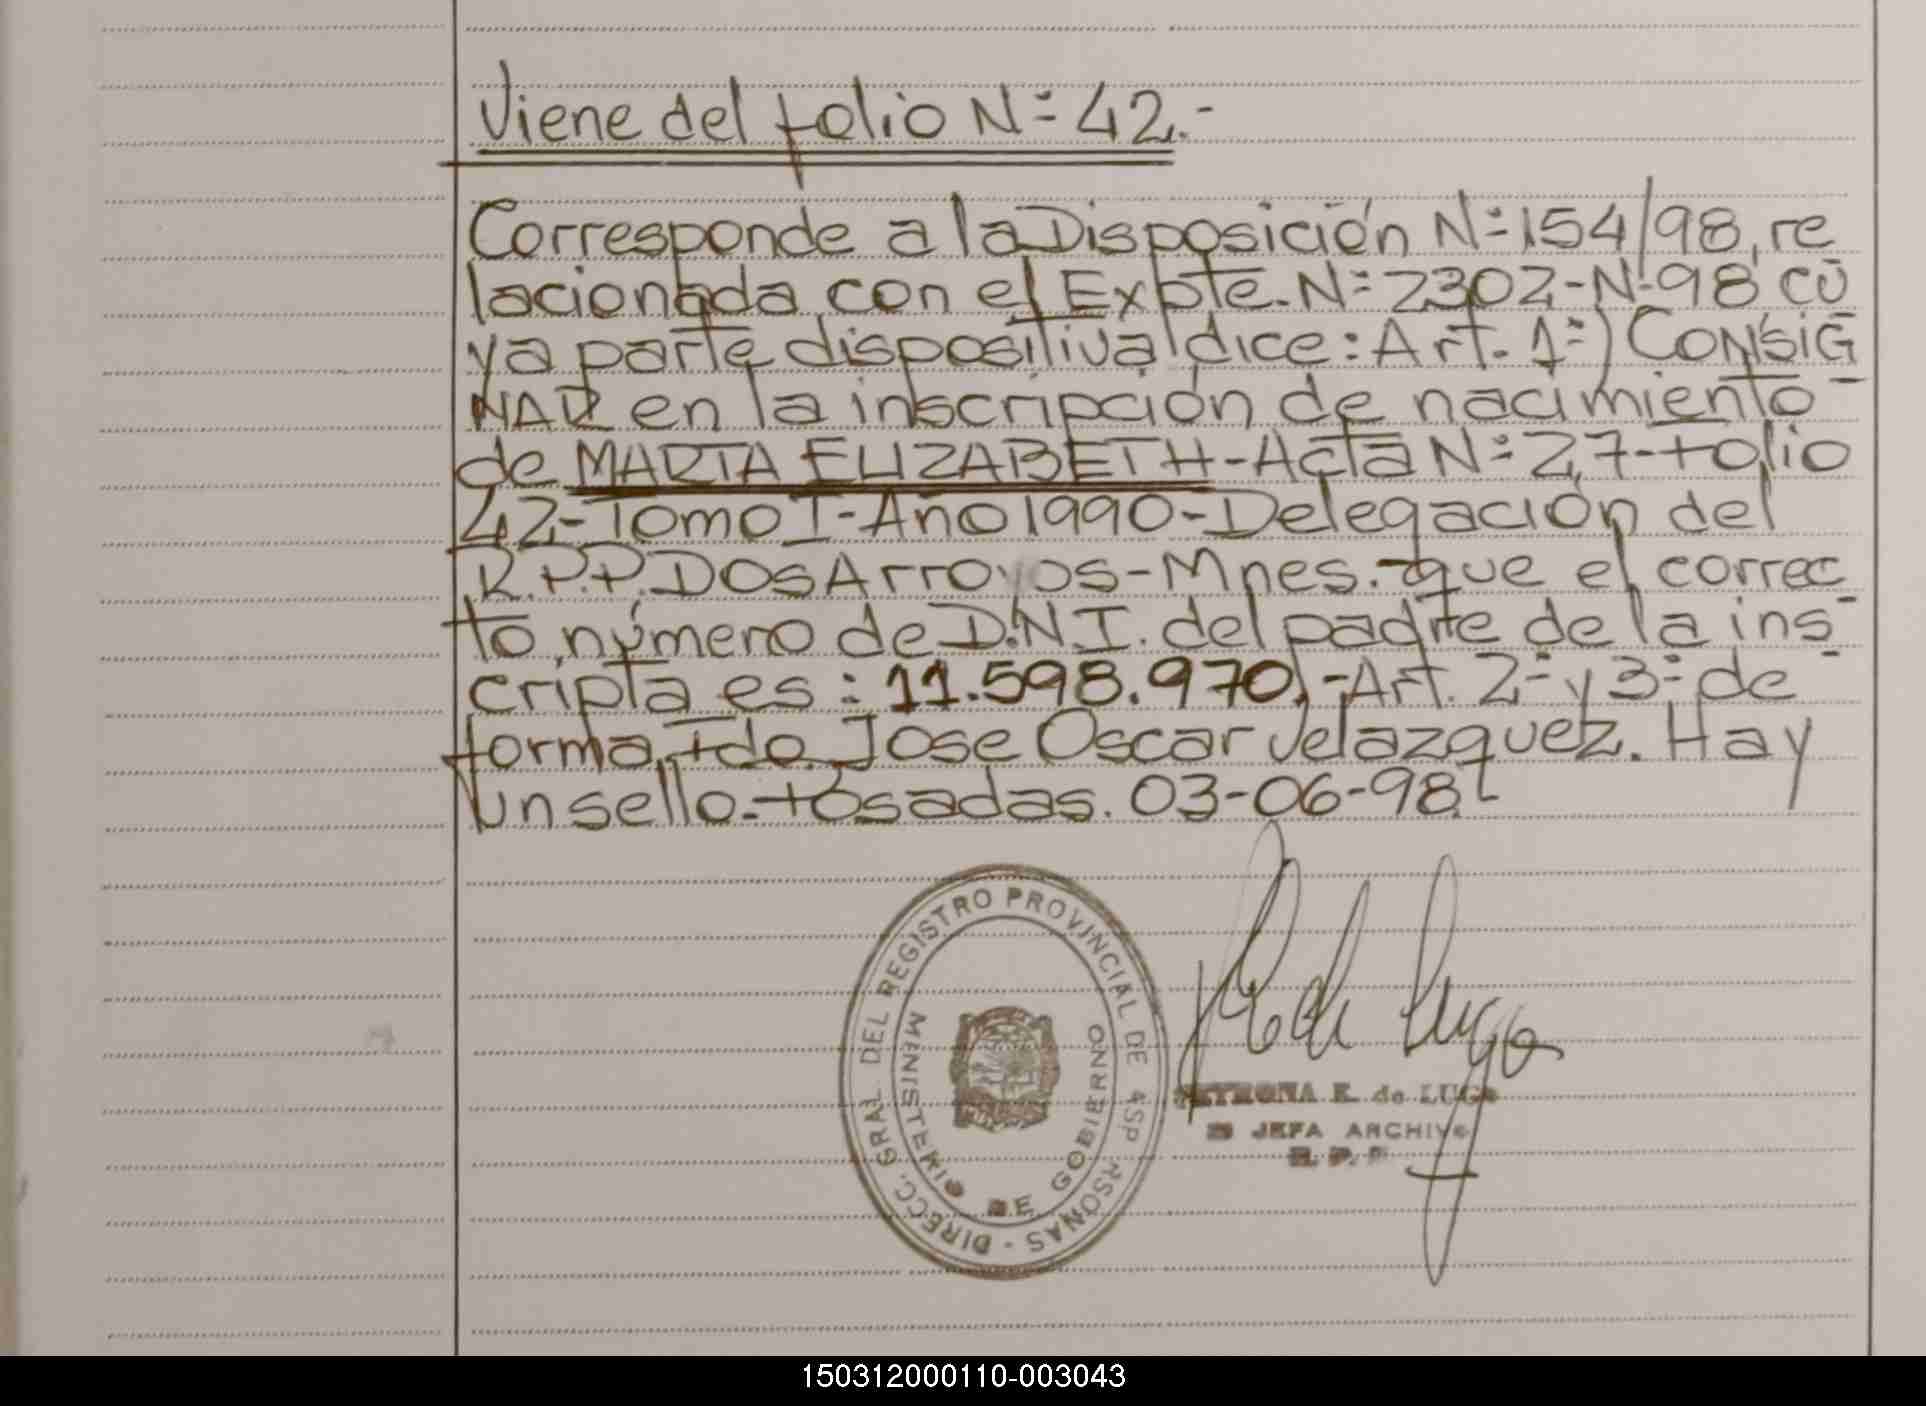 Viene del folio Nº 42.-
Corresponde a la Disposición Nº 154/98, re
lacionada con el Expte. Nº 2302-N-98 cu
ya parte dispositiva dice: Art. 1º) CONSIG
NAR en la inscripción de nacimiento-
de MARTA ELIZABETH-Acta Nº 27-folio
42-Tomo I-Año 1990-Delegación del
R.P.P. Dos Arroyos-Mnes.-que el correc
to, número de D.N.I. del padre de la ins-
cripta es: 11.598.970.-Art. 2º y 3º de-
forma. Fdo. Jose Oscar Velazquez. Hay
un sello.-Posadas. 03-06-98.
DIRECC. GRAL DEL REGISTRO PROVINCIAL DE LAS PERSONAS -
MINISTERIO DE GOBIERNO
R. de Lugo
PETRONA R. de LUGO
JEFA ARCHIVO
R. P. P.
150312000110-003043